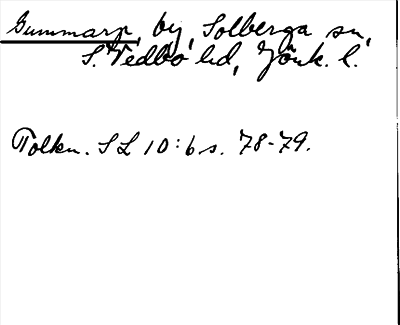 Gummarp, by, Solberga sn,
S. Vedbo hd, Jönk. l.
Tolkn. SL 10:6 s. 78-79.